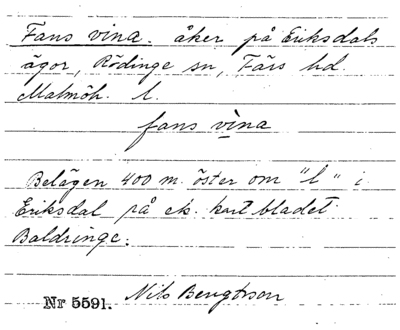 Fans vina. åker på Eriksdals
ägor, Rödinge sn, Färs hd.
Malmöh. l.
fans vina
Belägen 400 m. öster om "l" i
Eriksdal på ek. kartbladet
Baldringe.
Nr 5591. Nils Bengtsson